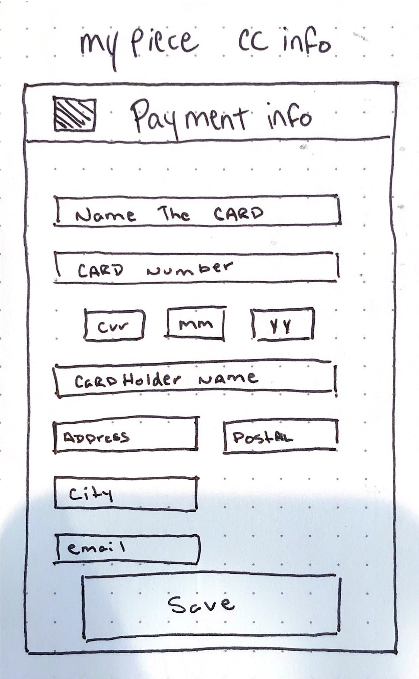 my piece CC info
Payment info
Name The CARD
CARD Number
CVV mm YY
CARDHolder NAME
ADDress Postal
City
email
Save